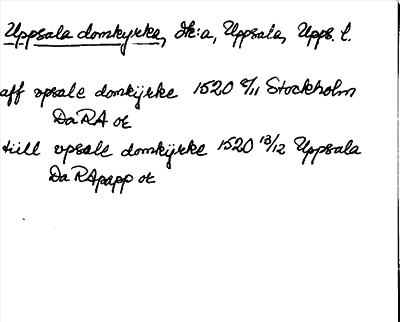 Uppsala domkyrka, dk:a, Uppsala, Upps. l.
aff vpsale domkijrke 1520 9/11 Stockholm
DaRA ot
tiill vpsale domkijrke 1520 13/12 Uppsala
DaRApapp ot